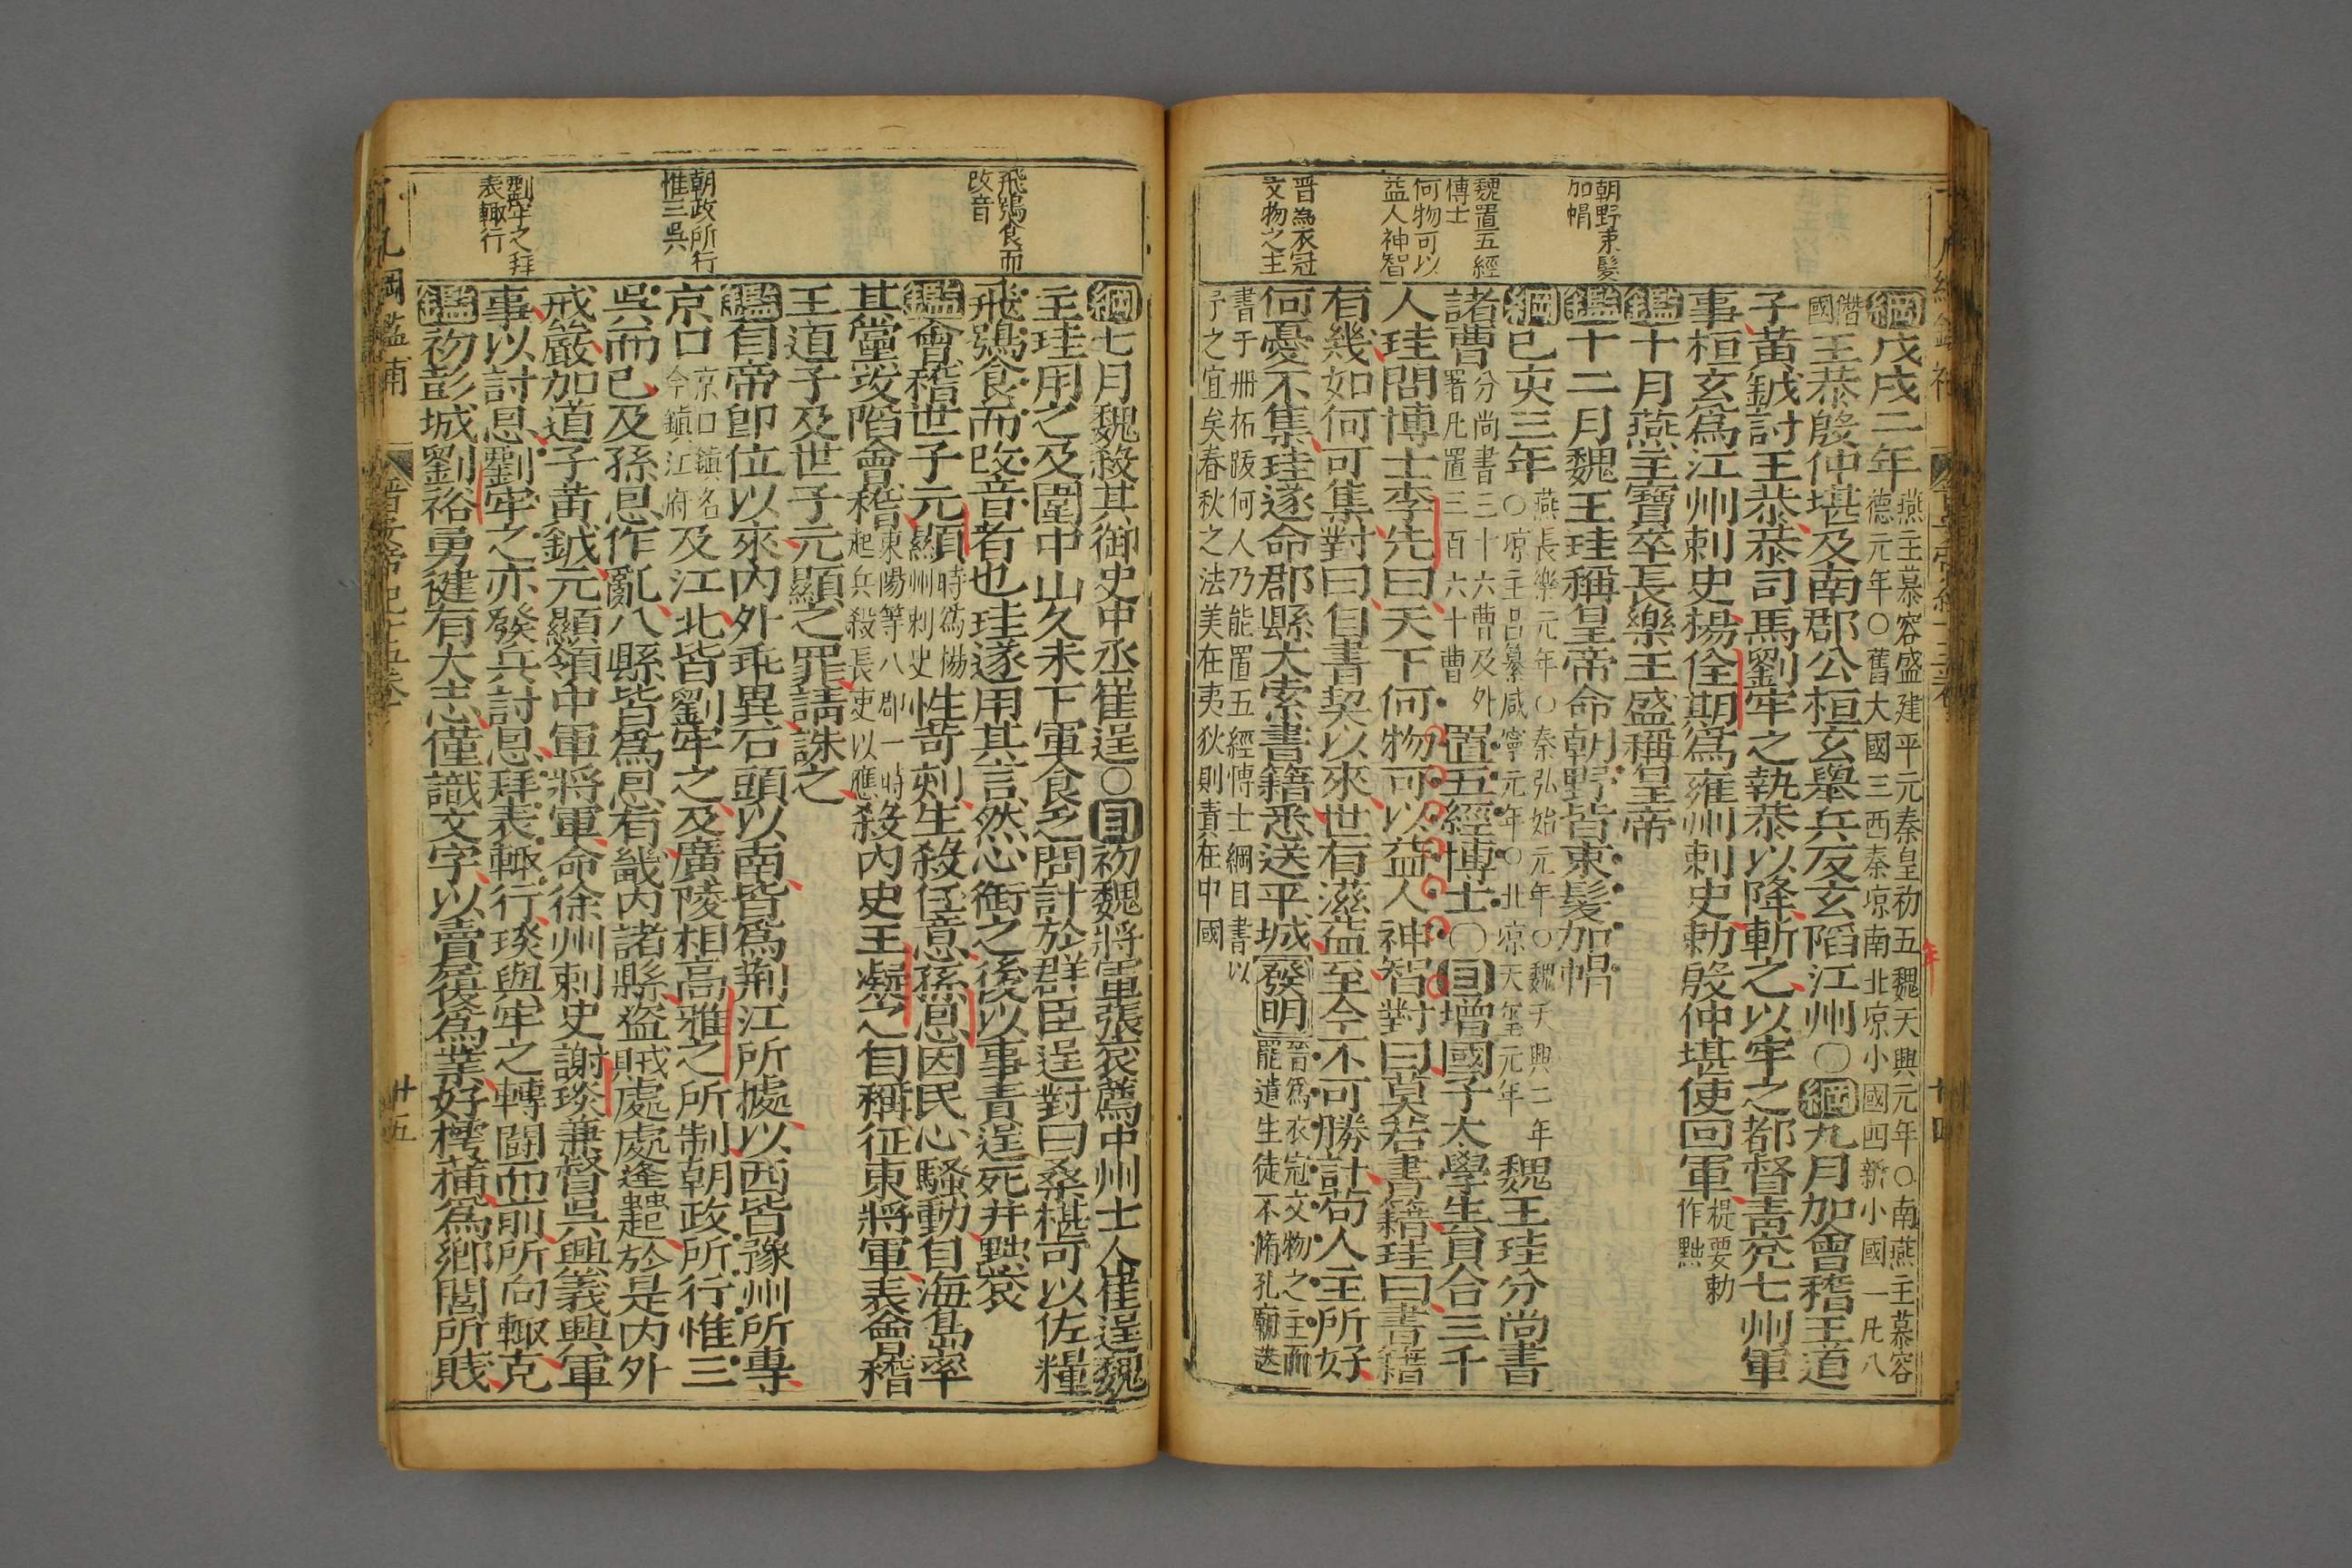 朝野束髮
加帽
魏置五經
博士
何物可以
益人神智
晋為衣冠
文物之主
綱戊戌二年燕主慕容盛建平元秦皇初五魏天興元年○南燕主慕容
德元年○舊大國三西秦凉南北凉小國四新小國一凡八
僭
國王恭殷仲堪及南郡公桓玄舉兵反玄陷江州○綱九月加會稽王道
子黃鉞討王恭恭司馬劉牢之執恭以降斬之以牢之都督靑兖七州軍
事桓玄爲江州刺史楊佺期爲雍州刺史勑殷仲堪使回軍提要勅
作黜
鑑十月燕主寶卒長樂王盛稱皇帝
鑑十二月魏王珪稱皇帝命朝野皆束髮加帽
綱己亥三年燕長樂元年○秦弘始元年○魏天興二年
○凉主呂纂咸寧元年○北凉天璽元年魏王珪分尚書
諸曹分尚書三十六曹及外
署凡置三百六十曹置五經博士○目增國子太學生員合三千
人珪問博士李先曰天下何物可以益人神智對曰莫若書籍珪曰書籍
有幾如何可集對曰自書契以來世有滋益至今不可勝計苟人主所好
何憂不集珪遂命郡縣大索書籍悉送平城發明晉爲衣冠文物之主而
罷遣生徒不脩孔廟迭
書于冊拓跋何人乃能置五經博士綱目書以
予之宜矣春秋之法美在夷狄則責在中國
飛鴞食而
改音
朝政所行
惟三吳
劉牢之拜
表輒行
綱七月魏殺其御史中丞崔逞○目初魏將軍張袞薦中州士人崔逞魏
主珪用之及圍中山久未下軍食乏問計於群臣逞對曰桑椹可以佐糧
飛鴞食而改音者也珪遂用其言然心銜之後以事責逞死并黜袞
鑑會稽世子元顯時爲揚
州刺史性苛刻生殺任意孫恩因民心騷動自海島率
其黨攻陷會稽東陽等八郡一時
起兵殺長吏以應殺內史王凝之自稱征東將軍表會稽
王道子及世子元顯之罪請誅之
鑑自帝卽位以來內外乖異石頭以南皆爲荆江所據以西皆豫州所專
京口京口鎮名
今鎮江府及江北皆劉牢之及廣陵相高雅之所制朝政所行惟三
吳而已及孫恩作亂八縣皆爲恩有畿內諸縣盜賊處處蠭起於是內外
戒嚴加道子黃鉞元顯領中軍將軍命徐州刺史謝琰兼督吳興義興軍
事以討恩劉牢之亦發兵討恩拜表輒行琰與牢之轉鬪而前所向輒克
鑑初彭城劉裕勇健有大志僅識文字以賣履爲業好樗蒲爲鄉閭所賤
凡綱鑑補
晉安帝紀十五卷
廿五